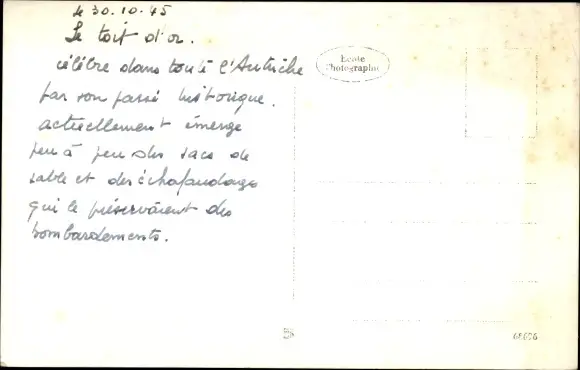 le 30.10.45
Le toit d'or.
célèbre dans toute l'Autriche
par son passé historique.
actuellement émerge
peu à peu des sacs de
sable et des échafaudages
qui le préservaient des
bombardements.
Echte
Photographie
68696